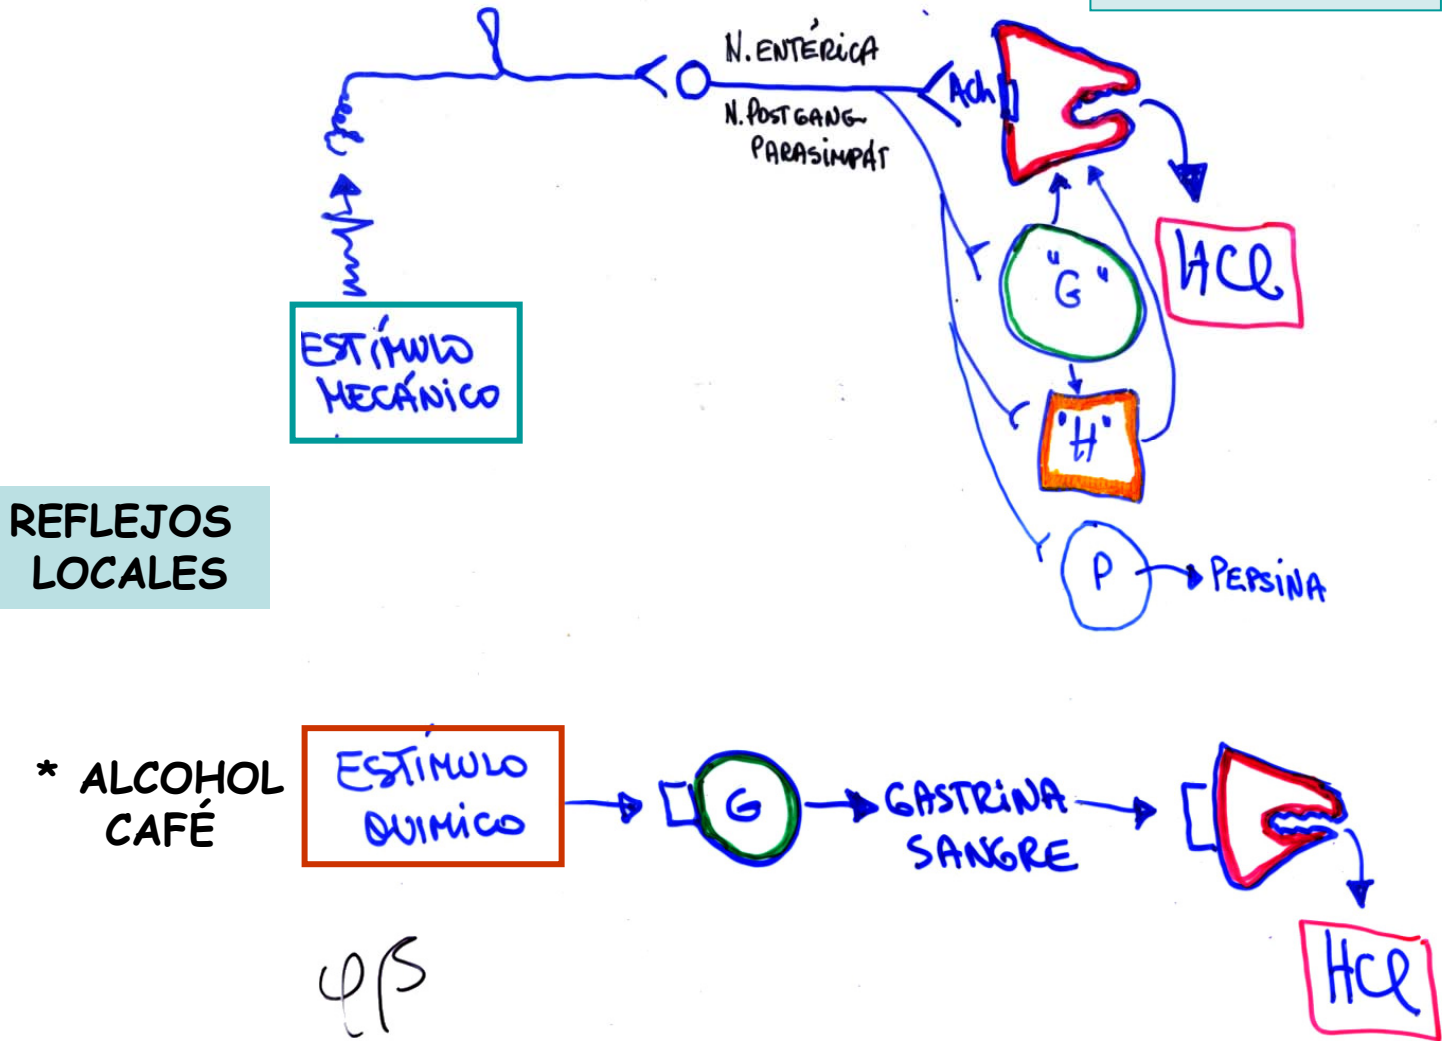 N. ENTÉRICA
N. POSTGANG
PARASIMPÁT
Ach
"G"
HCl
ESTÍMULO
MECÁNICO
"H"
REFLEJOS
LOCALES
P
PEPSINA
* ALCOHOL
CAFÉ
ESTÍMULO
QUIMICO
G
GASTRINA
SANGRE
HCl